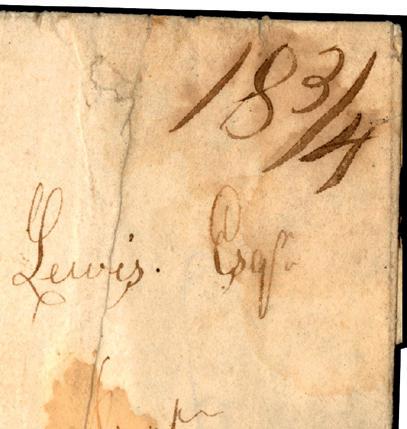 18 3/4
Lewis. Esqr